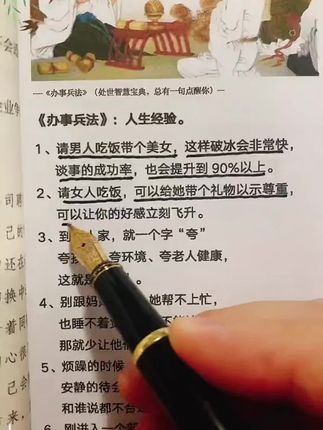 —《办事兵法》（处世智慧宝典，总有一句点醒你）—
《办事兵法》：人生经验。
1、请男人吃饭带个美女，这样破冰会非常快，
谈事的成功率，也会提升到 90%以上。
2、请女人吃饭，可以给她带个礼物以示尊重，
可以让你的好感立刻飞升。
3、到 人家，就一个字“夸”
夸 夸环境、夸老人健康，
这就是
4、别跟妈 她帮不上忙，
也睡不着
那就少让他
5、烦躁的时候
安静的待会
和谁说都不合
6、刚进入一个新
会
业
司聘
己的
还在
换中
着同
心很
已会
来，